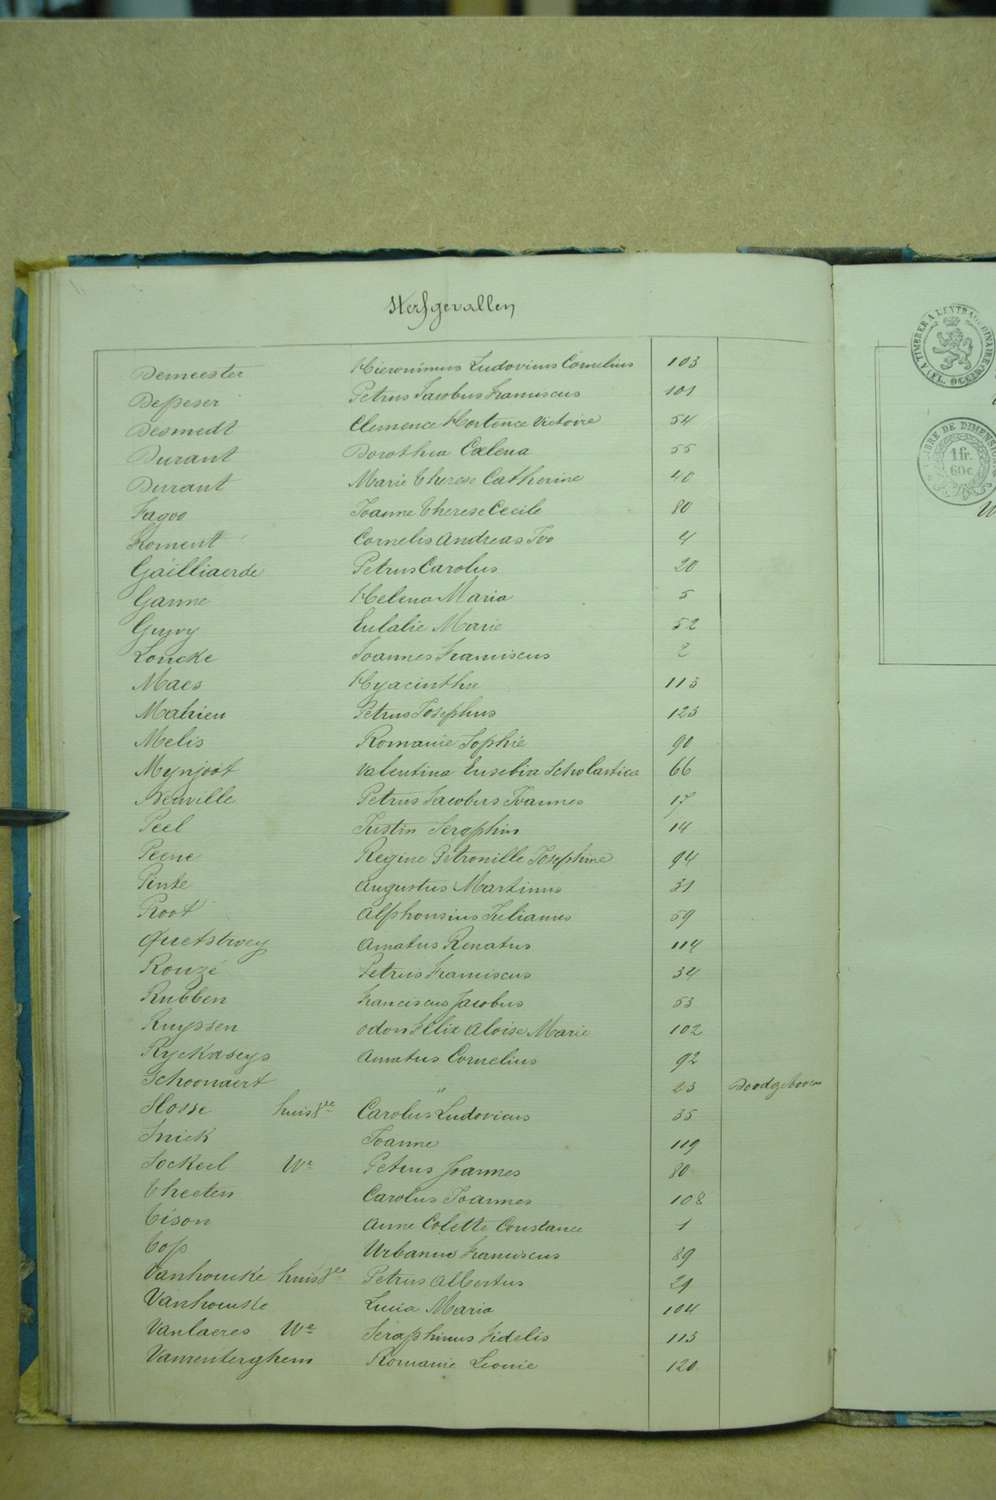 Sterfgevallen
Demeester Hieronimus Ludovicus Cornelius 103
Depeser Petrus Jacobus Franciscus 101
Desmedt Clemence Hortence Victoire 54
Durant Dorothea Coelena 55
Durant Marie Therese Catherine 40
Fagoo Joanne Therese Cecile 80
Froment Cornelis Andreas Ivo 4
Gailliaerde Petrus Carolus 20
Ganne Helena Maria 5
Gruwy Eulalie Marie 52
Loncke Joannes Franciscus 2
Maes Hyacintha 113
Mahieu Petrus Josephus 123
Melis Romanie Sophie 90
Mynjoot Valentina Eusebia Scholastica 66
Neuville Petrus Jacobus Joannes 17
Peel Justin Seraphin 14
Peene Regine Petronille Josephine 94
Pinte Augustus Martinus 31
Root Alphonsius Julianus 59
Quetstroey Amatus Renatus 114
Rouzé Petrus Franciscus 34
Rubben Franciscus Jacobus 53
Ruyssen Odon Felix Aloise Marie 102
Ryckaseys Amatus Cornelius 92
Schoonaert " 23 Doodgeboren
Slosse huisvr Carolus Ludovicus 35
Snick Joanne 119
Sockeel We Petrus Joannes 80
Theeten Carolus Joannes 108
Tison Anne Colette Constance 1
Top Urbanus Franciscus 89
Vanhoucke huisvr Petrus Albertus 29
Vanhoucke Lucia Maria 104
Vanlaeres We Seraphinus Fidelis 113
Vanrenterghem Romanie Leonie 120
TIMBRER A L'EXTRAORDINAIRE
(FL. OCCID.)
TIMBRE DE DIMENSION
1 fr.
60 c.